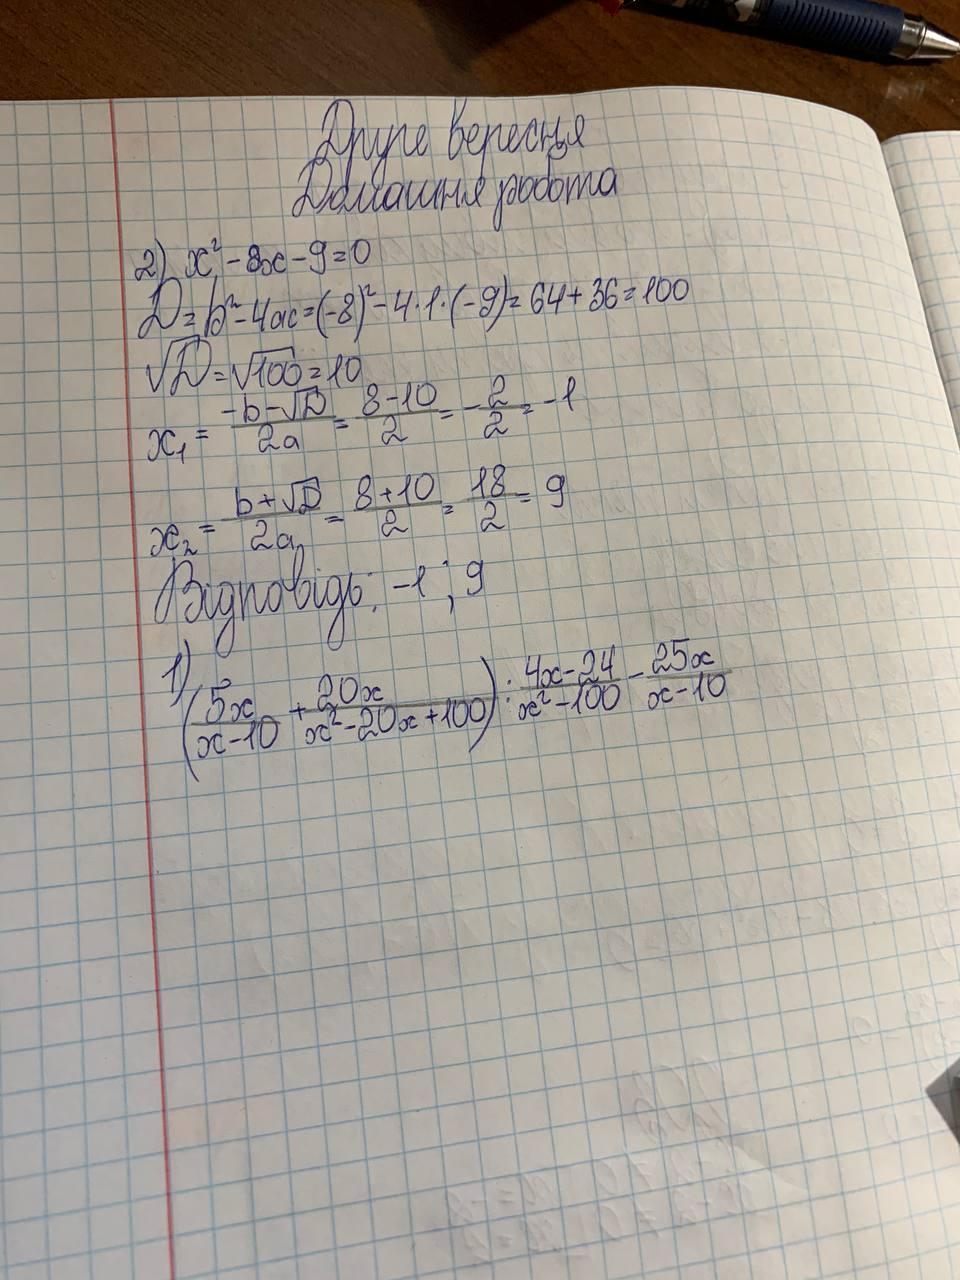 Друге вересня
Домашня робота
2) x² - 8x - 9 = 0
D = b² - 4ac = (-8)² - 4·1·(-9) = 64 + 36 = 100
√D = √100 = 10
x₁ = (-b - √D)/2a = (8 - 10)/2 = -2/2 = -1
x₂ = (b + √D)/2a = (8 + 10)/2 = 18/2 = 9
Відповідь: -1; 9
1) (5x/(x - 10) + 20x/(x² - 20x + 100)) : (4x - 24)/(x² - 100) - 25x/(x - 10)